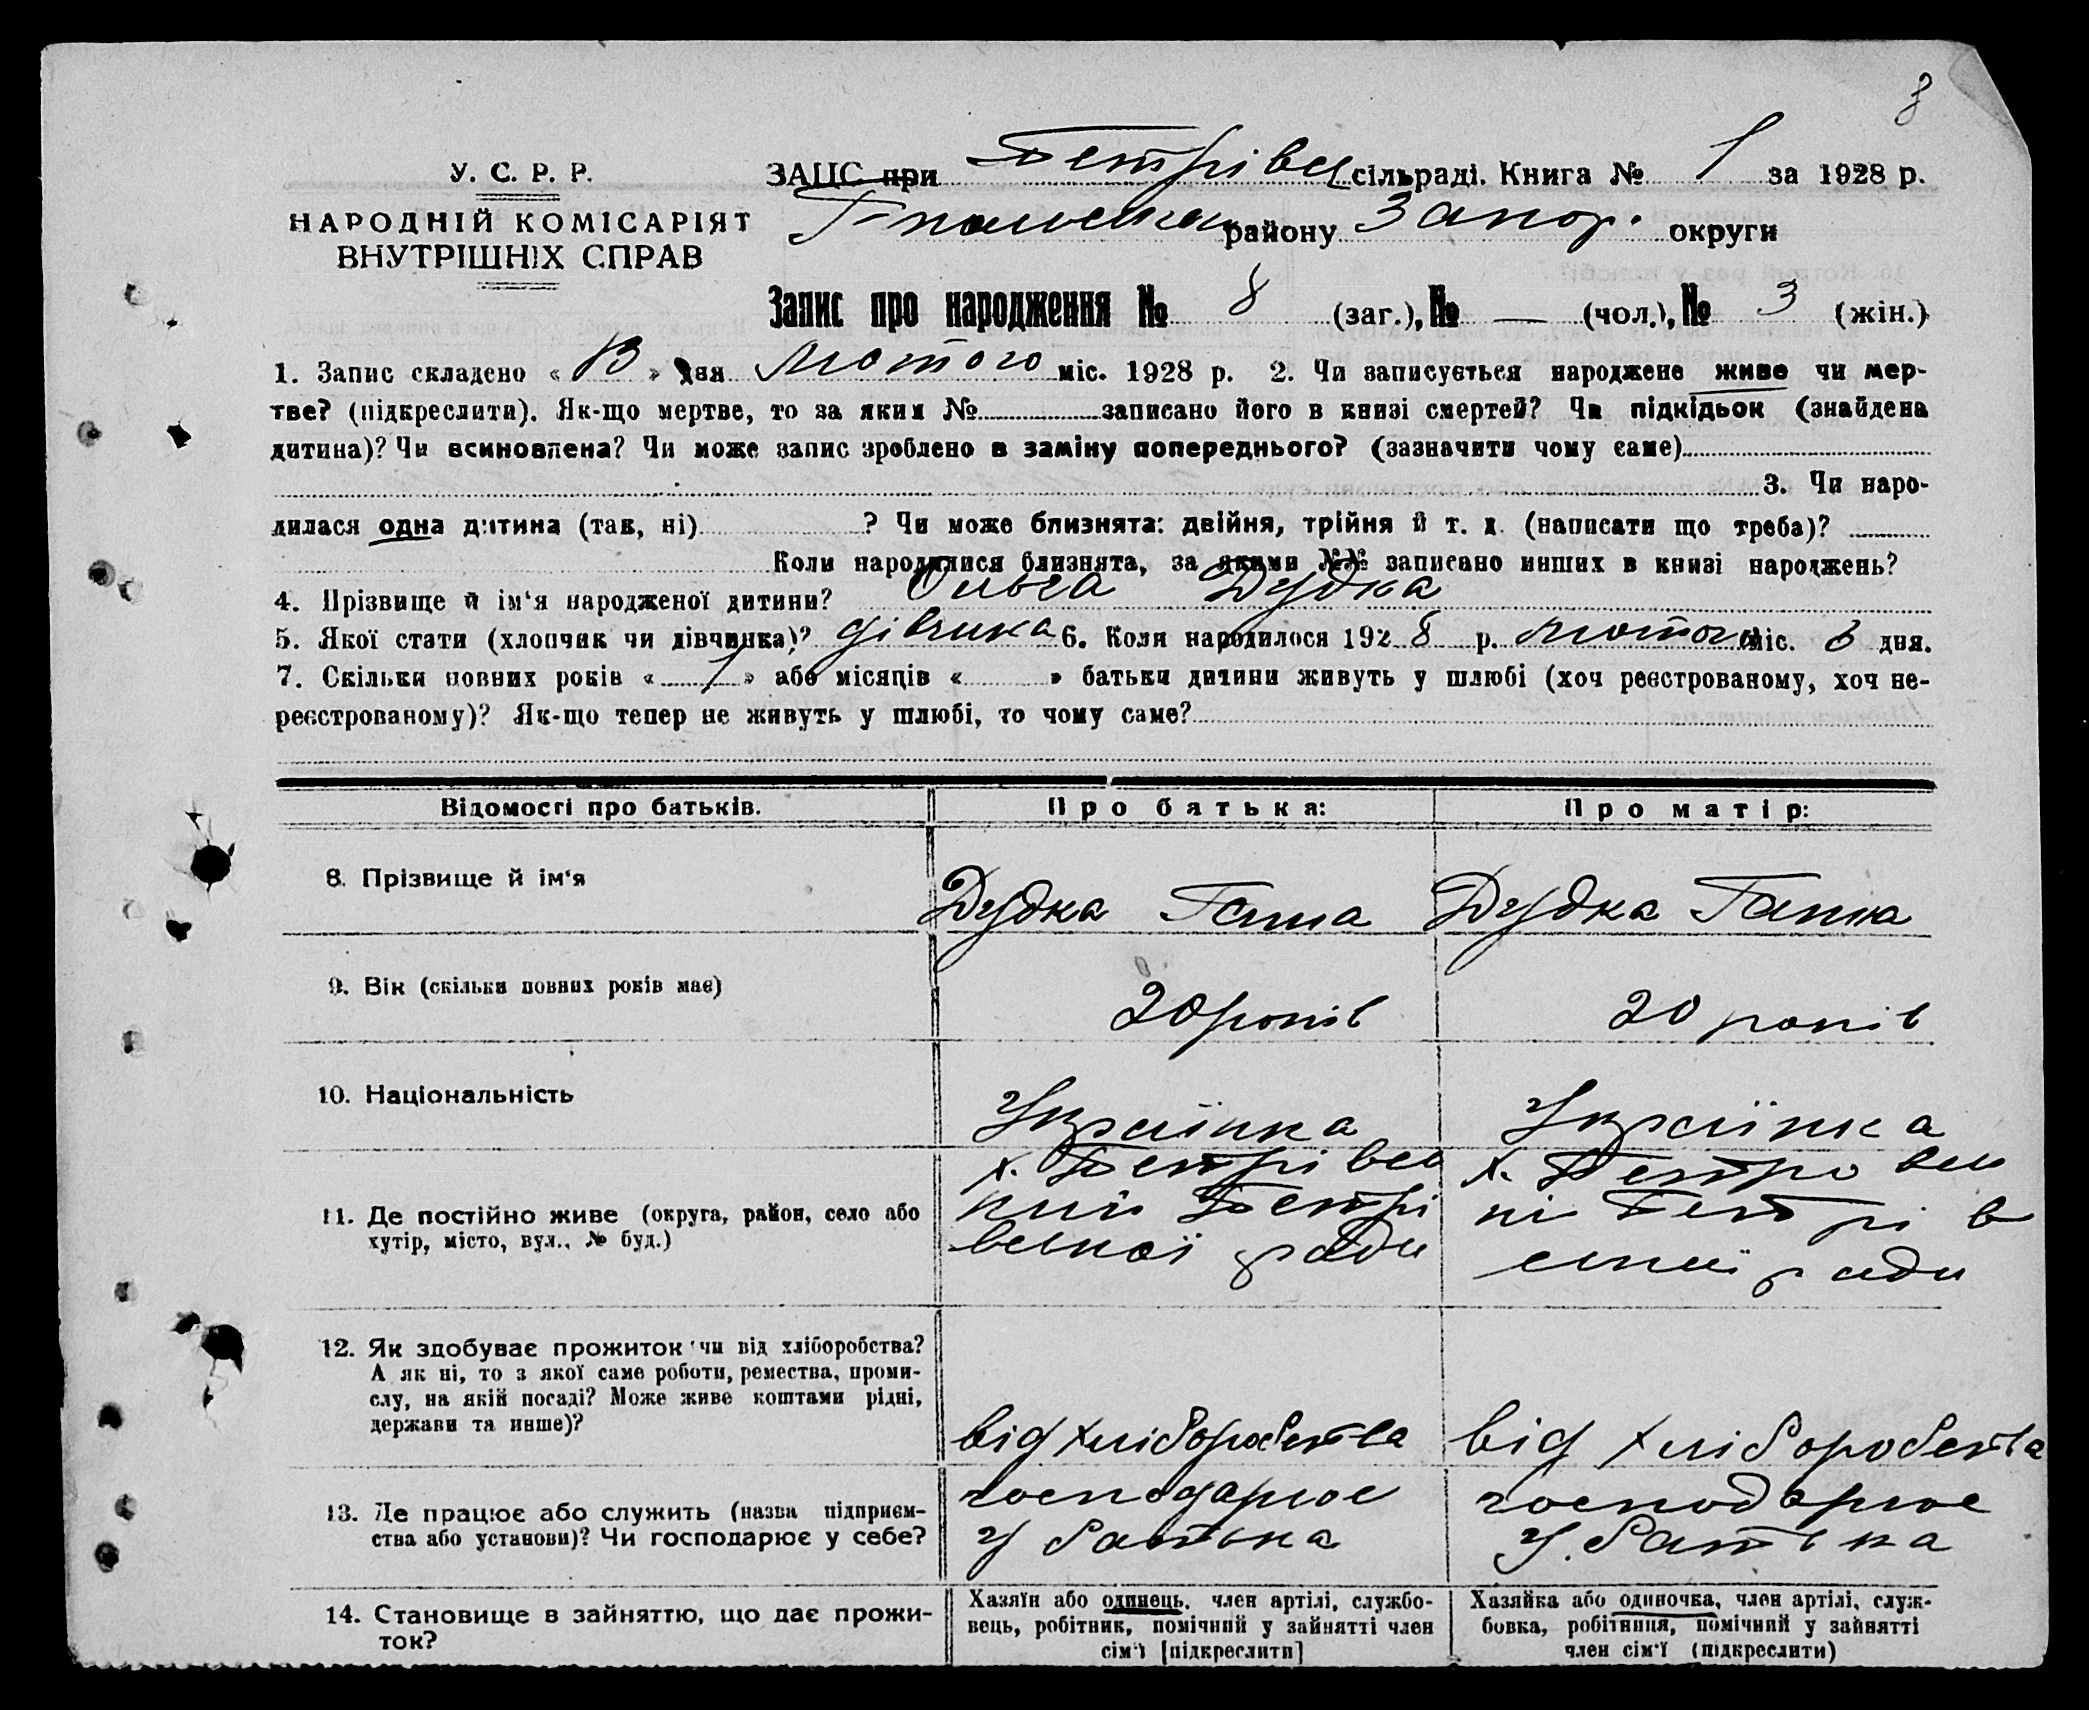 8
У. С. Р. Р.
НАРОДНІЙ КОМІСАРІЯТ
ВНУТРІШНІХ СПРАВ
ЗАЦС при Петрівс сільраді. Книга № 1 за 1928 р.
району Запор. округи
Запис про народження № 8 (заг.), № — (чол.), № 3 (жін.)
1. Запис складено « 13 » дня Лютого міс. 1928 р. 2. Чи записується народжене живе чи мер-
тве? (підкреслити). Як-що мертве, то за яким № записано його в книзі смертей? Чи підкідьок (знайдена
дитина)? Чи всиновлена? Чи може запис зроблено в заміну попереднього? (зазначити чому саме)
3. Чи наро-
дилася одна дитина (так, ні) ? Чи може близнята: двійня, трійня й т. д. (написати що треба)?
Коли народилися близнята, за якими №№ записано инших в книзі народжень?
4. Прізвище й ім‘я народженої дитини? Ольга Дудка
5. Якої стати (хлопчик чи дівчинка)? дівчика 6. Коли народилося 1928 р. лютого міс. 6 дня.
7. Скільки повних років « 1 » або місяців « » батьки дитини живуть у шлюбі (хоч реєстрованому, хоч не-
реєстрованому)? Як-що тепер не живуть у шлюбі, то чому саме?
Відомості про батьків. Про батька: Про матір:
8. Прізвище й ім‘я
Дудка Дудка Ганна
9. Вік (скільки повних років має)
20 років 20 років
10. Національність
Українка Українка
11. Де постійно живе (округа, район, село або
хутір, місто, вул., № буд.)
х. Петрівсь
кий Петрі
вської ради
х. Петровсь
кі Петрів
ської ради
12. Як здобуває прожиток чи від хліборобства?
А як ні, то з якої саме роботи, ремества, проми-
слу, на якій посаді? Може живе коштами рідні,
держави та инше)?
від хліборобства від хліборобства
13. Де працює або служить (назва підприєм-
ства або установи)? Чи господарює у себе?
господарює
у батька
господарює
у батька
14. Становище в зайняттю, що дає прожи-
ток?
Хазяїн або одинець, член артілі, службо-
вець, робітник, помічний у зайнятті член
сім‘ї [підкреслити]
Хазяйка або одиночка, член артілі, служ-
бовка, робітниця, помічний у зайнятті
член сім‘ї (підкреслити)